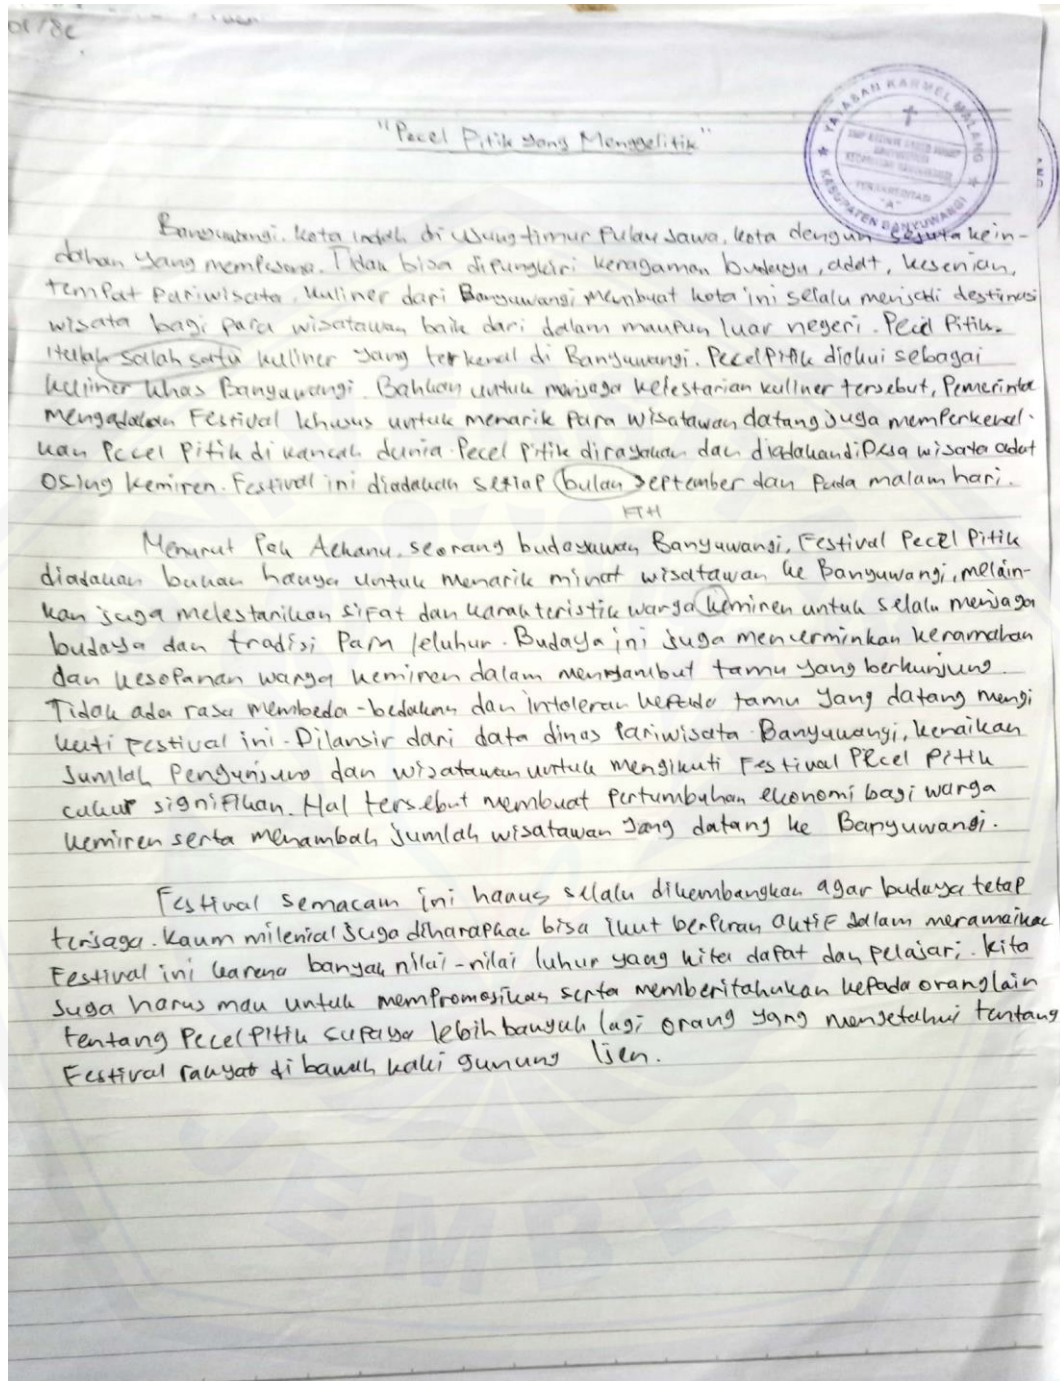 "Pecel Pitik yang Menggelitik"
YAYASAN KARMEL MALANG
KABUPATEN BANYUWANGI
TERAKREDITASI
"A"
Banyuwangi. kota indah di ujung timur Pulau Jawa, kota dengan sejuta kein-
dahan yang mempesona. Tidak bisa dipungkiri keragaman budaya, adat, kesenian,
tempat pariwisata, kuliner dari Banyuwangi membuat kota ini selalu menjadi destinasi
wisata bagi para wisatawan baik dari dalam maupun luar negeri. Pecel Pitik.
Itulah salah satu kuliner yang terkenal di Banyuwangi. Pecel Pitik diakui sebagai
kuliner khas Banyuwangi. Bahkan untuk menjaga kelestarian kuliner tersebut, Pemerintah
mengadakan Festival khusus untuk menarik para wisatawan datang juga memperkenal-
kan Pecel Pitik di kancah dunia. Pecel Pitik dirayakan dan diadakan di Desa wisata adat
Osing Kemiren. Festival ini diadakan setiap bulan September dan pada malam hari.
Menurut Pak Adnanu, seorang budayawan Banyuwangi, Festival Pecel Pitik
diadakan bukan hanya untuk menarik minat wisatawan ke Banyuwangi, melain-
kan juga melestarikan sifat dan karakteristik warga kemiren untuk selalu menjaga
budaya dan tradisi Para leluhur. Budaya ini juga mencerminkan keramahan
dan kesopanan warga kemiren dalam menyambut tamu yang berkunjung.
Tidak ada rasa membeda-bedakan dan intoleran kepada tamu yang datang mengi
kuti festival ini. Dilansir dari data dinas Pariwisata Banyuwangi, kenaikan
Jumlah Pengunjung dan wisatawan untuk mengikuti Festival Pecel Pitik
cukup signifikan. Hal tersebut membuat pertumbuhan ekonomi bagi warga
kemiren serta menambah jumlah wisatawan yang datang ke Banyuwangi.
Festival semacam ini harus selalu dikembangkan agar budaya tetap
terjaga. Kaum milenial juga diharapkan bisa ikut berperan aktif dalam meramaikan
Festival ini karena banyak nilai-nilai luhur yang kita dapat dan pelajari. Kita
juga harus mau untuk mempromosikan serta memberitahukan kepada orang lain
tentang Pecel Pitik supaya lebih banyak lagi orang yang mengetahui tentang
Festival rakyat di bawah kaki gunung Ijen.